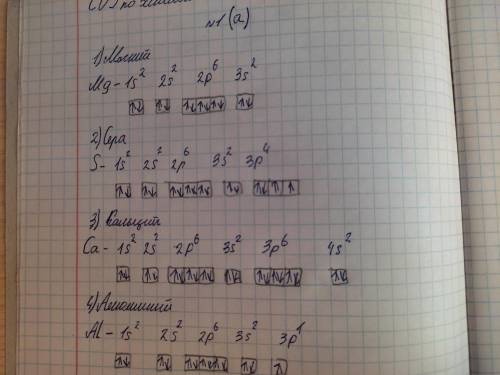 №1 (а)
1) Магний
Mg - 1s² 2s² 2p⁶ 3s²
↑↓ ↑↓ ↑↓↑↓↑↓ ↑↓
2) Сера
S - 1s² 2s² 2p⁶ 3s² 3p⁴
↑↓ ↑↓ ↑↓↑↓↑↓ ↑↓ ↑↓↑↑
3) Кальций
Ca - 1s² 2s² 2p⁶ 3s² 3p⁶ 4s²
↑↓ ↑↓ ↑↓↑↓↑↓ ↑↓ ↑↓↑↓↑↓ ↑↓
4) Алюминий
Al - 1s² 2s² 2p⁶ 3s² 3p¹
↑↓ ↑↓ ↑↓↑↓↑↓ ↑↓ ↑